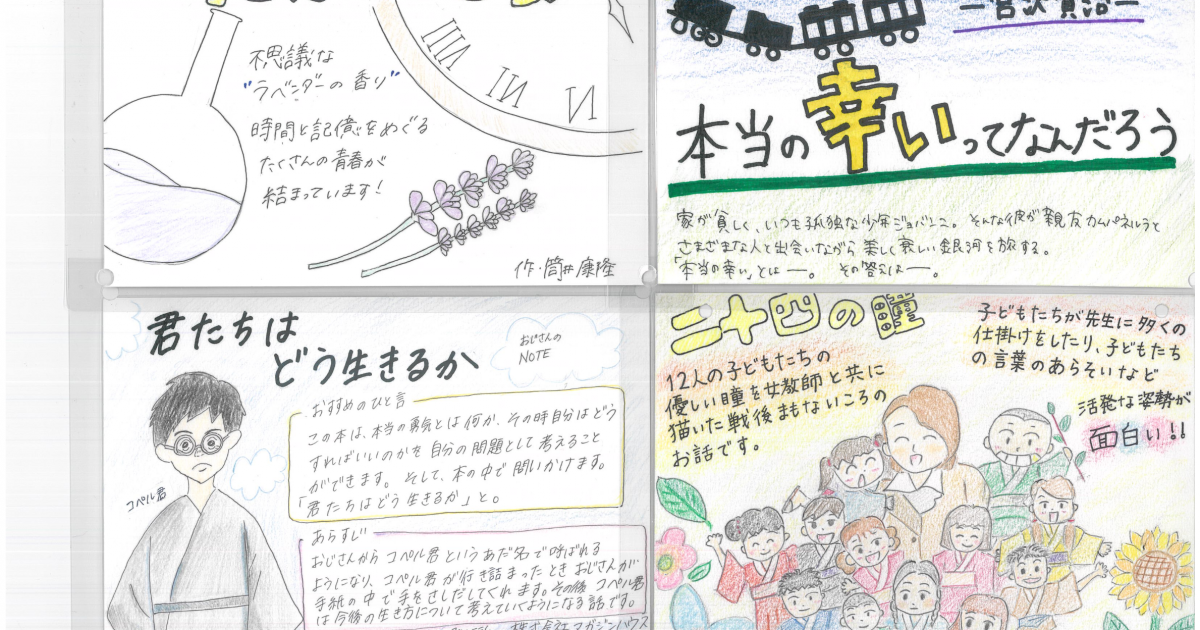 不思議な
"ラベンダーの香り"
時間と記憶をめぐる
たくさんの青春が
結まっています!
作・筒井康隆
―宮沢賢治―
本当の幸いってなんだろう
家が貧しく、いつも孤独な少年ジョバンニ。そんな彼が親友カムパネルラと
さまざまな人と出会いながら美しく哀しい銀河を旅する。
「本当の幸い」とは ―。 その答えは―。
君たちは
どう生きるか
おじさんの
NOTE
コペル君
おすすめのひと言
この本は、本当の勇気とは何か、その時自分はどう
すればいいのかを自分の問題として考えること
ができます。そして、本の中で問いかけます。
「君たちはどう生きるか」と。
あらすじ
おじさんからコペル君というあだ名で呼ばれる
ようになり、コペル君が行き詰まったときおじさんが
手紙の中で手をさしだしてくれます。その後コペル君
は今後の生き方について考えていくようになる話です。
株式会社マガジンハウス
二十四の瞳
12人の子どもたちの
優しい瞳を女教師と共に
描いた戦後まもないころの
お話です。
子どもたちが先生に多くの
仕掛けをしたり、子どもたち
の言葉のあらそいなど
活発な姿勢が
面白い!!